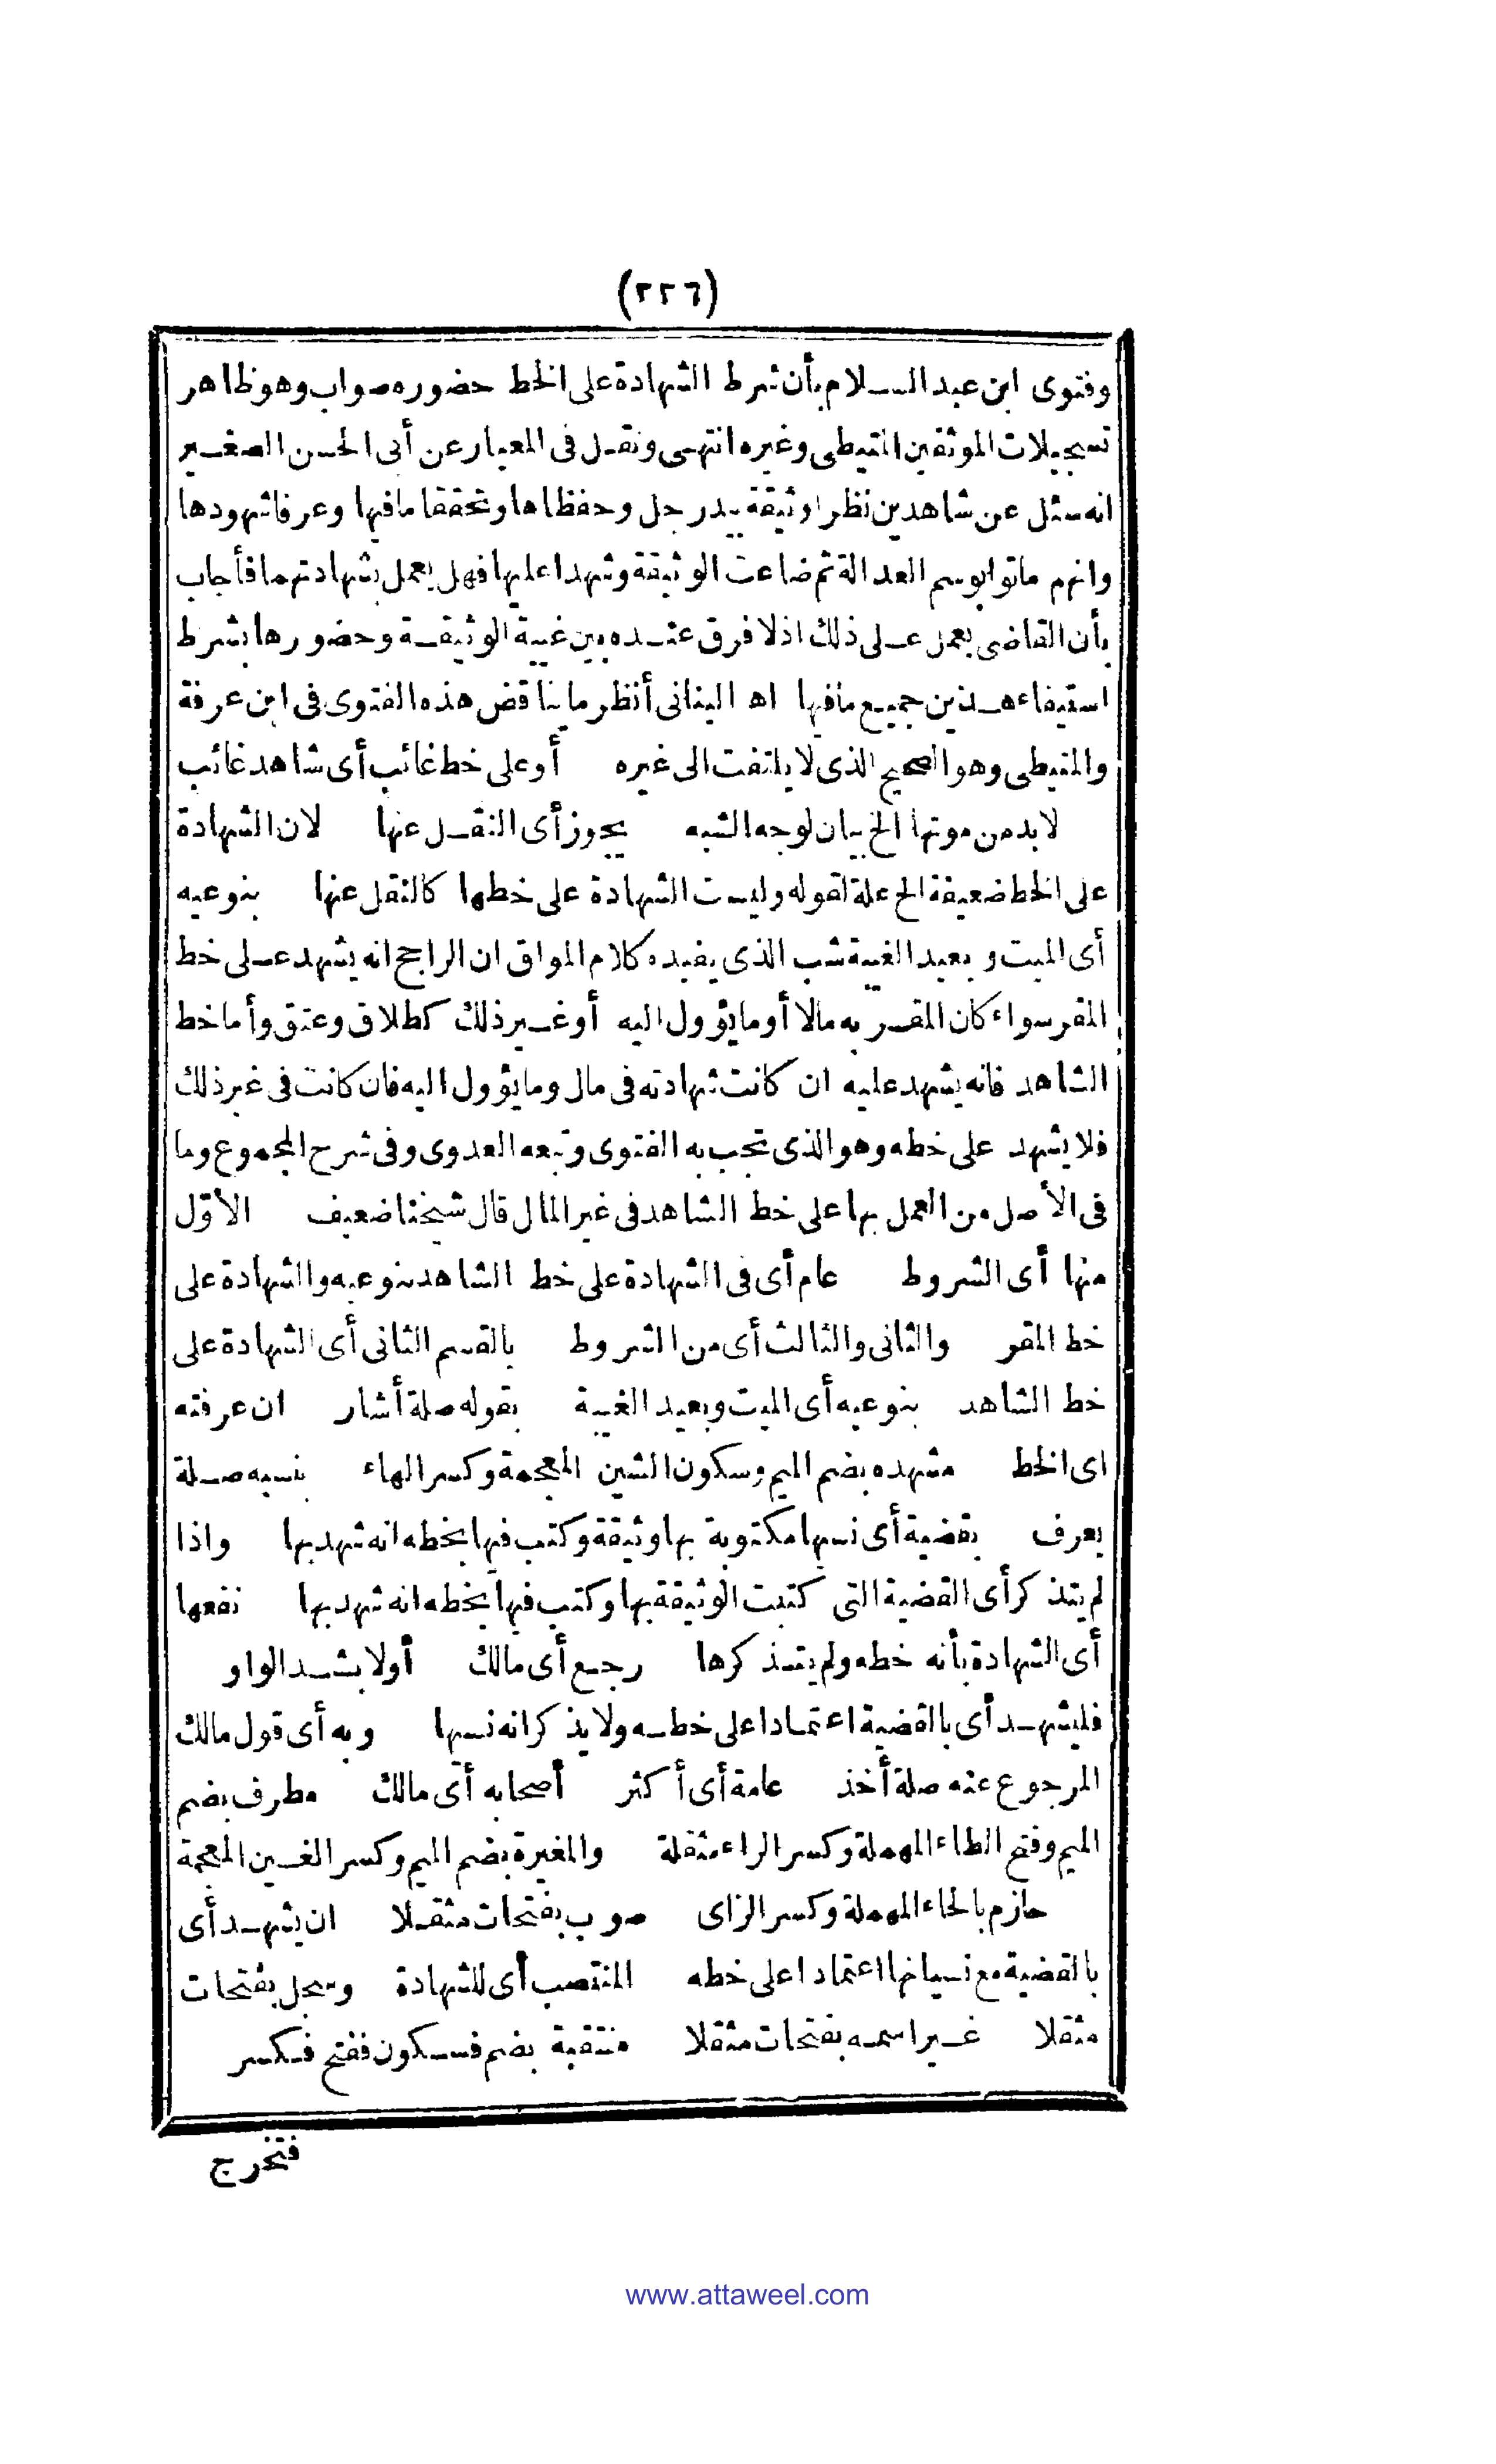 (٢٢٦)
وفتوى ابن عبد السلام بأن شرط الشهادة على الخط حضوره صواب وهو ظاهر
تسجيلات الموثقين المتيطى وغيره انتهى ونقل فى المعيار عن أبى الحسن الصغير
انه سئل عن شاهدين نظرا وثيقة بيد رجل وحفظاها وتحققا مافيها وعرفا شهودها
وانهم ماتوا بوسم العدالة ثم ضاعت الوثيقة وشهدا عليها فهل يعمل بشهادتهما فأجاب
بأن القاضى يعمل على ذلك اذلا فرق عنده بين غيبة الوثيقة وحضورها بشرط
استيفاء هذين جميع مافيها اه البنانى أنظر ما يناقض هذه الفتوى فى ابن عرفة
والمتيطى وهو الصحيح الذى لا يلتفت الى غيره أو على خط غائب أى شاهد غائب
لابد من موتها الخ بيان لوجه الشبه يجوز أى النقل عنها لان الشهادة
على الخط ضعيفة الخ علة لقوله وليست الشهادة على خطها كالنقل عنها بنوعيه
أى الميت و بعيد الغيبة شب الذى يفيده كلام المواق ان الراجح انه يشهد على خط
المقر سواء كان المقر به مالا أو ما يؤول اليه أو غير ذلك كطلاق وعتق وأما خط
الشاهد فانه يشهد عليه ان كانت شهادته فى مال وما يؤول اليه فان كانت فى غير ذلك
فلا يشهد على خطه وهو الذى تجب به الفتوى وتبعه العدوى وفى شرح المجموع وما
فى الأصل من العمل بها على خط الشاهد فى غير المال قال شيخنا ضعيف الأوّل
منها أى الشروط عام أى فى الشهادة على خط الشاهد بنوعيه والشهادة على
خط المقر والثانى والثالث أى من الشروط بالقسم الثانى أى الشهادة على
خط الشاهد بنوعيه أى الميت وبعيد الغيبة بقوله صلة أشار ان عرفته
اى الخط مشهده بضم الميم وسكون الشين المعجمة وكسر الهاء بنسبه صلة
يعرف بقضية أى نسيها مكتوبة بها وثيقة وكتب فيها بخطه انه شهد بها واذا
لم يتذكر أى القضية التى كتبت الوثيقة بها وكتب فيها بخطه انه شهد بها نفعها
أى الشهادة بأنه خطه ولم يتذكرها رجع أى مالك أولا بشد الواو
فليشهد أى بالقضية اعتمادا على خطه ولا يذكر انه نسيها وبه أى قول مالك
المرجوع عنه صلة أخذ عامة أى أكثر أصحابه أى مالك مطرف بضم
الميم وفتح الطاء المهملة وكسر الراء مثقلة والمغيرة بضم الميم وكسر الغين المعجمة
حازم بالحاء المهملة وكسر الزاى صوب بفتحات مثقلا ان يشهد أى
بالقضية مع نسيانها اعتمادا على خطه المنتصب أى للشهادة وسجل بفتحات
مثقلا غير اسمه بفتحات مثقلا منتقبة بضم فسكون ففتح فكسر
فتخرج
www.attaweel.com